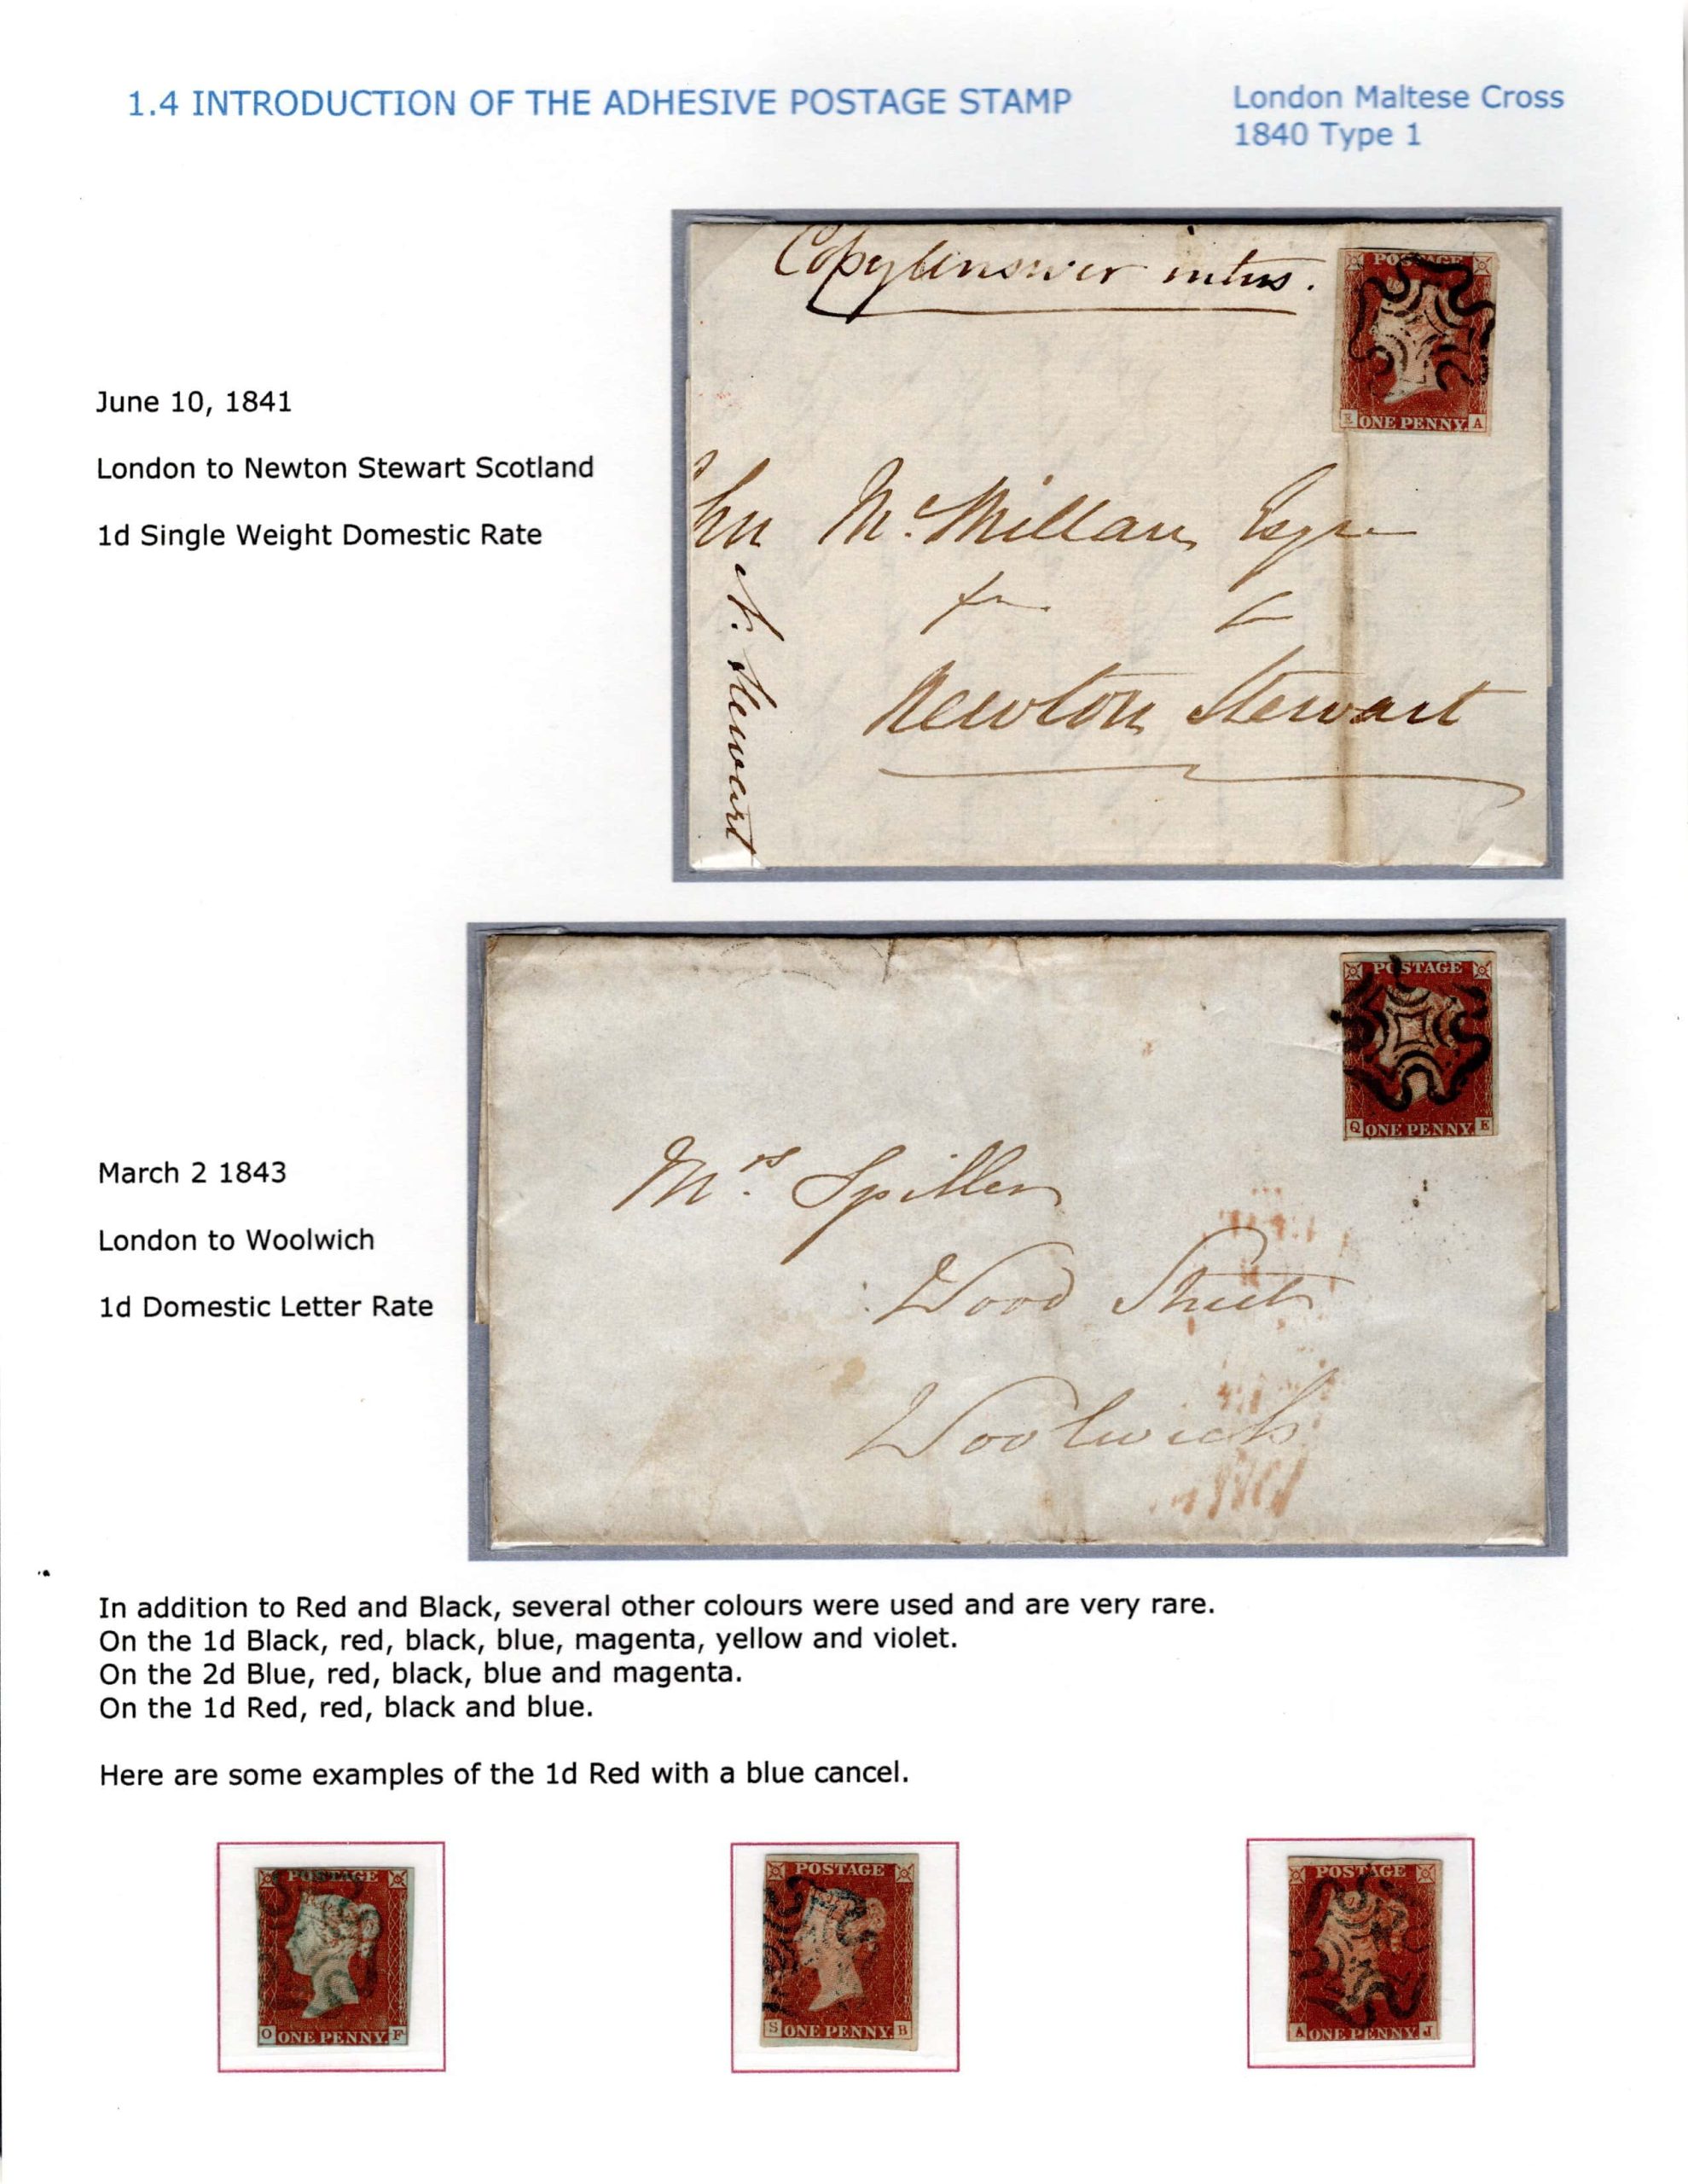 1.4 INTRODUCTION OF THE ADHESIVE POSTAGE STAMP
London Maltese Cross
1840 Type 1
June 10, 1841
London to Newton Stewart Scotland
1d Single Weight Domestic Rate
intus.
POSTAGE
E ONE PENNY. A
McMillan Esqre
Newton Stewart
N. Stewart
March 2 1843
London to Woolwich
1d Domestic Letter Rate
POSTAGE
Q ONE PENNY. E
Mrs. Spiller
Wood Street
Woolwich
In addition to Red and Black, several other colours were used and are very rare.
On the 1d Black, red, black, blue, magenta, yellow and violet.
On the 2d Blue, red, black, blue and magenta.
On the 1d Red, red, black and blue.
Here are some examples of the 1d Red with a blue cancel.
POSTAGE
O ONE PENNY F
POSTAGE
S ONE PENNY. B
POSTAGE
A ONE PENNY. J